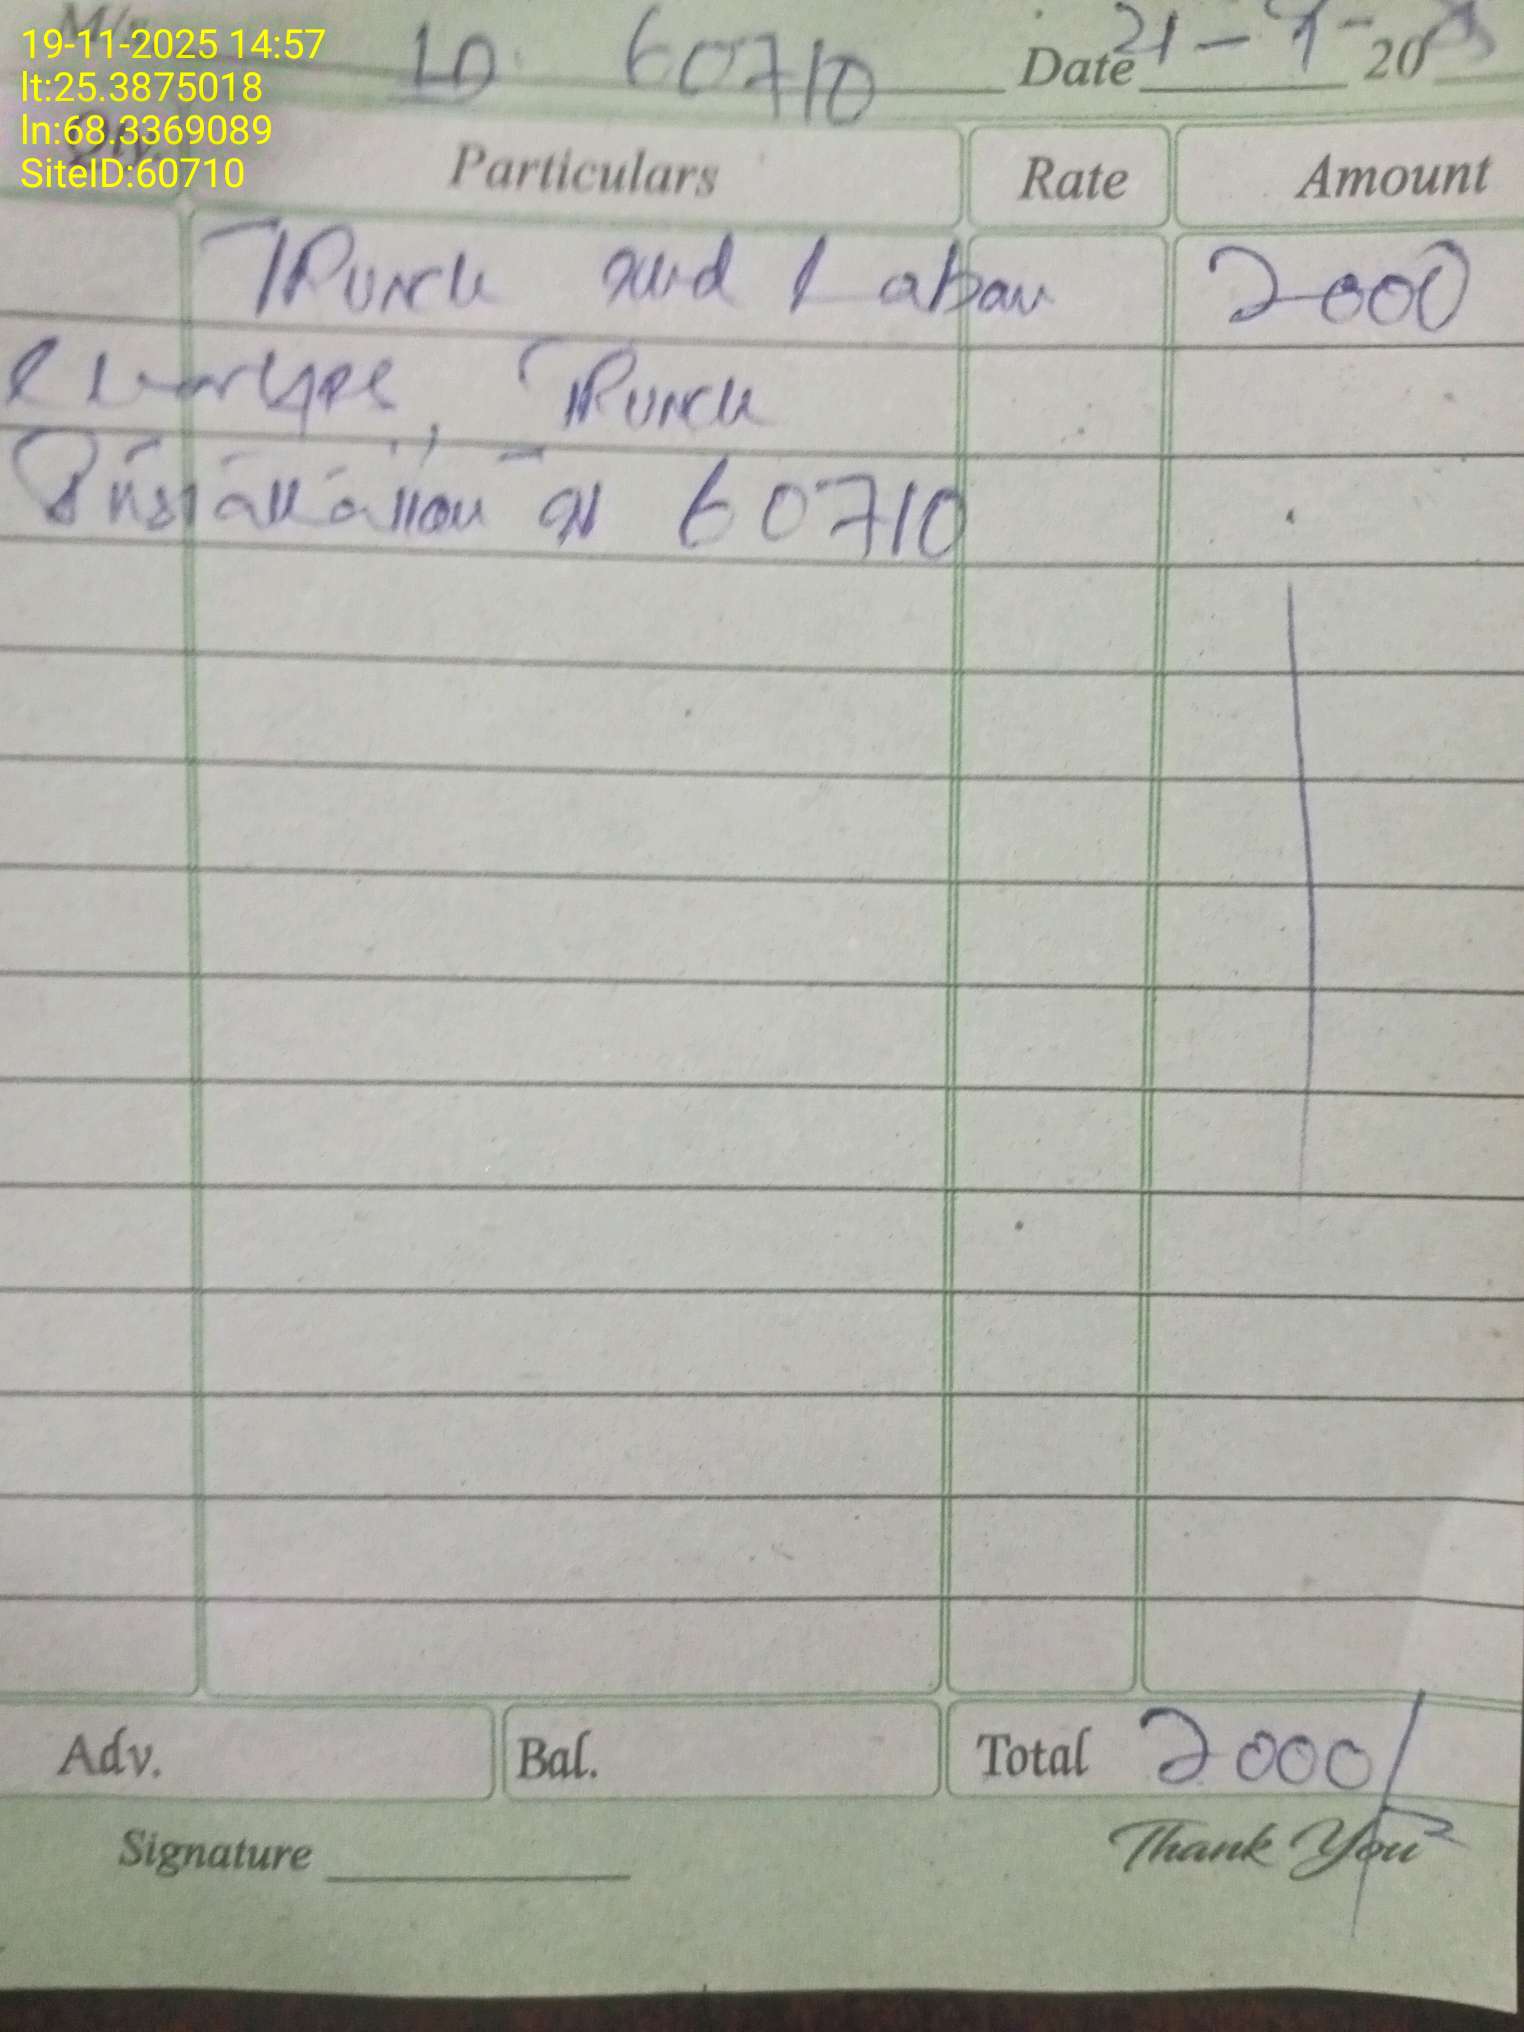 19-11-2025 14:57
lt:25.3875018
ln:68.3369089
SiteID:60710
M/s
ID 60710 Date 21-7-20
Particulars Rate Amount
and Labour 2000
Charges,
Installation 60710
Adv. Bal. Total 2000/
Signature Thank You